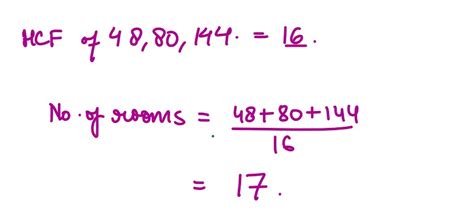 HCF of 48, 80, 144. = 16.
No. of rooms = 48+80+144
16
= 17.